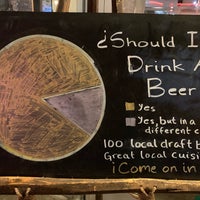 ¿Should I
Drink A
Beer
Yes
Yes, but in a
different c
100 local draft b
Great local Cuisi
¡Come on in